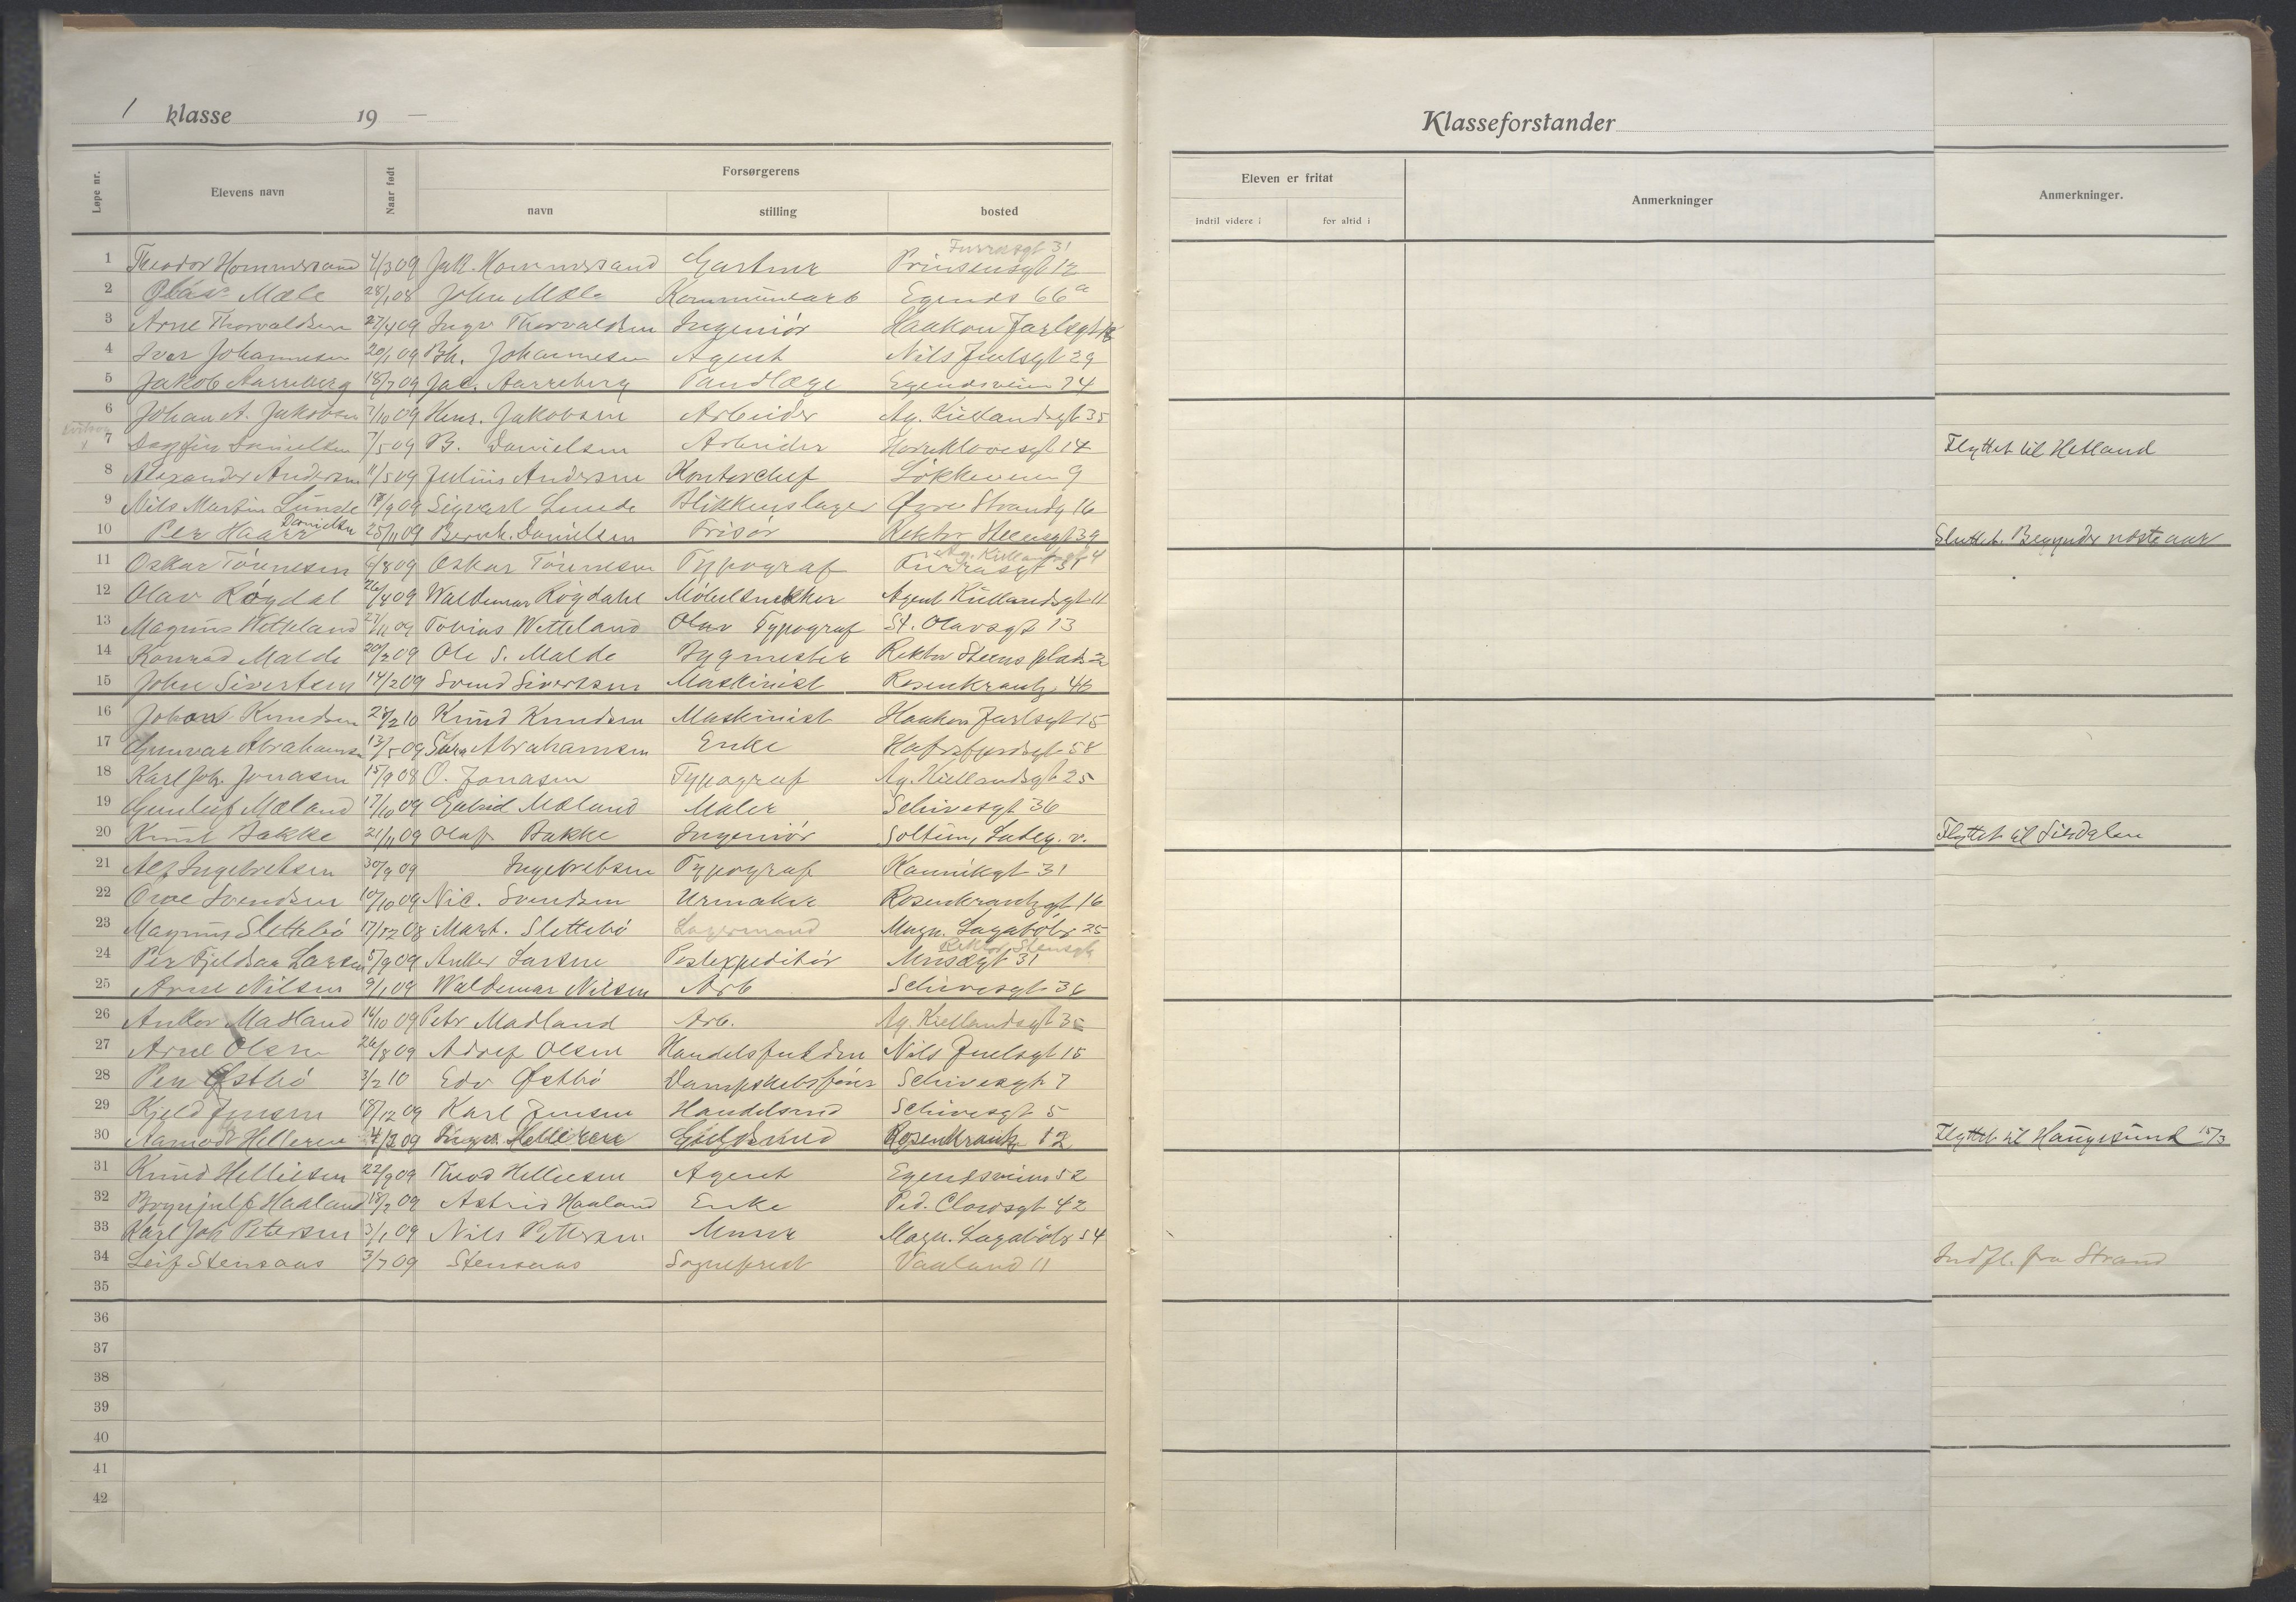 1 klasse 19 —
Klasseforstander
Løpe nr. Elevens navn Naar født Forsørgerens
navn stilling bosted
Eleven er fritat Anmerkninger Anmerkninger.
indtil videre i for altid i
Furrasgt 31
1 Theodor Hommersand 4/3 09 Jak. Hommersand Gartner Prinsensgt 12
2 Olav Mæle 28/1 08 John Mæle Kommunearb Egends 66a
3 Arne Thorvaldsen 27/4 09 Ingv Thorvaldsen Ingeniör Haakon Jarlsgt
4 Ivar Johannesen 20/1 09 Bh. Johannesen Agent Nils Juelsgt 29
5 Jakob Aarreberg 18/7 09 Jac. Aarreberg Tandlæge Egendsveien 74
6 Johan A. Jakobsen 7/10 09 Henr. Jakobsen Arbeider Ag. Kiellandsgt 35
7 Dagfin Danielsen 7/5 09 B. Danielsen Arbeider Hornklovesgt 14 Flyttet til Hetland
8 Alexander Andersen 11/5 09 Julius Andersen Kontorchef Lökkeveien 9
9 Nils Martin Lunde 18/9 09 Sigvart Lunde Blikkenslager Øvre Strandg 16
10 Per Haarr Danielsen 25/11 09 Bernh. Danielsen Frisör Rektor Steensgt 39 Sluttet. Begynder næste aar
Ag. Kiellandsgt 4
11 Oskar Tönnesen 6/8 09 Oskar Tönnesen Typograf Furrasgt 31
12 Olav Rögdal 26/4 09 Waldemar Rögdahl Möbelsnekker Agent Kiellandsgt 11
13 Magnus Wetteland 27/11 09 Tobias Wetteland Typograf St. Olavsgt 13
14 Konrad Malde 20/2 09 Ole S. Malde Bygmester Rektor Steens plads 2
15 John Sivertsen 14/2 09 Svend Sivertsen Maskinist Rosenkrantz. 46
16 Johan Knudsen 2/2 10 Knud Knudsen Maskinist Haakon Jarlsgt 15
17 Gunnar Abrahamsen 13/5 09 Sara Abrahamsen Enke Hafrsfjordsgt 58
18 Karl Joh. Jonasen 15/9 08 O. Jonasen Typograf Ag. Kiellandsgt 25
19 Gunleif Mæland 17/10 09 Gabriel Mæland Maler Schivesgt 36
20 Knut Bakke 21/11 09 Olaf Bakke Ingeniör Soltun, v. Flyttet til Sirdalen
21 Alf Ingebretsen 30/9 09 Ingebretsen Typograf Kannikgt 31
22 Ove Svendsen 10/10 09 Nic. Svendsen Urmaker Rosenkrantzgt 16
23 Magnus Slettebö 17/12 08 Mart. Slettebö Lagermand Magn. Lagabötr 25
Rektor Stensgt
24 Per Fjeldsaa Larsen 5/9 09 Anker Larsen Postexpeditör Musægt 31
25 Arne Nilsen 9/1 09 Waldemar Nilsen Arb Schivesgt 36
26 Anker Madland 16/10 09 Petr Madland Arb. Ag. Kiellandsgt 35
27 Arne Olsen 26/8 09 Adolf Olsen Nils Juelsgt 15
28 Per Østbö 3/2 10 Edv Østbö Dampskibsförer Schivesgt 7
29 Kjeld Jensen 18/12 09 Karl Jensen Handelsmd Schivesgt 5
30 Aamodt Helleren 4/2 09 Helleren Rosenkrantz 12 Flyttet til Haugesund 15/3
31 Knud Helliesen 22/9 09 Theod Helliesen Agent Egendsveien 52
32 Brynjulf Haaland 18/2 09 Astrid Haaland Enke Ped. Clowsgt 42
33 Karl Joh Petersen 3/1 09 Nils Petersen Murer Magn. Lagabötr 54
34 Leif Stensaas 3/7 09 Stensaas Sogneprest Vaaland 11 Indfl. fra Strand
35
36
37
38
39
40
41
42